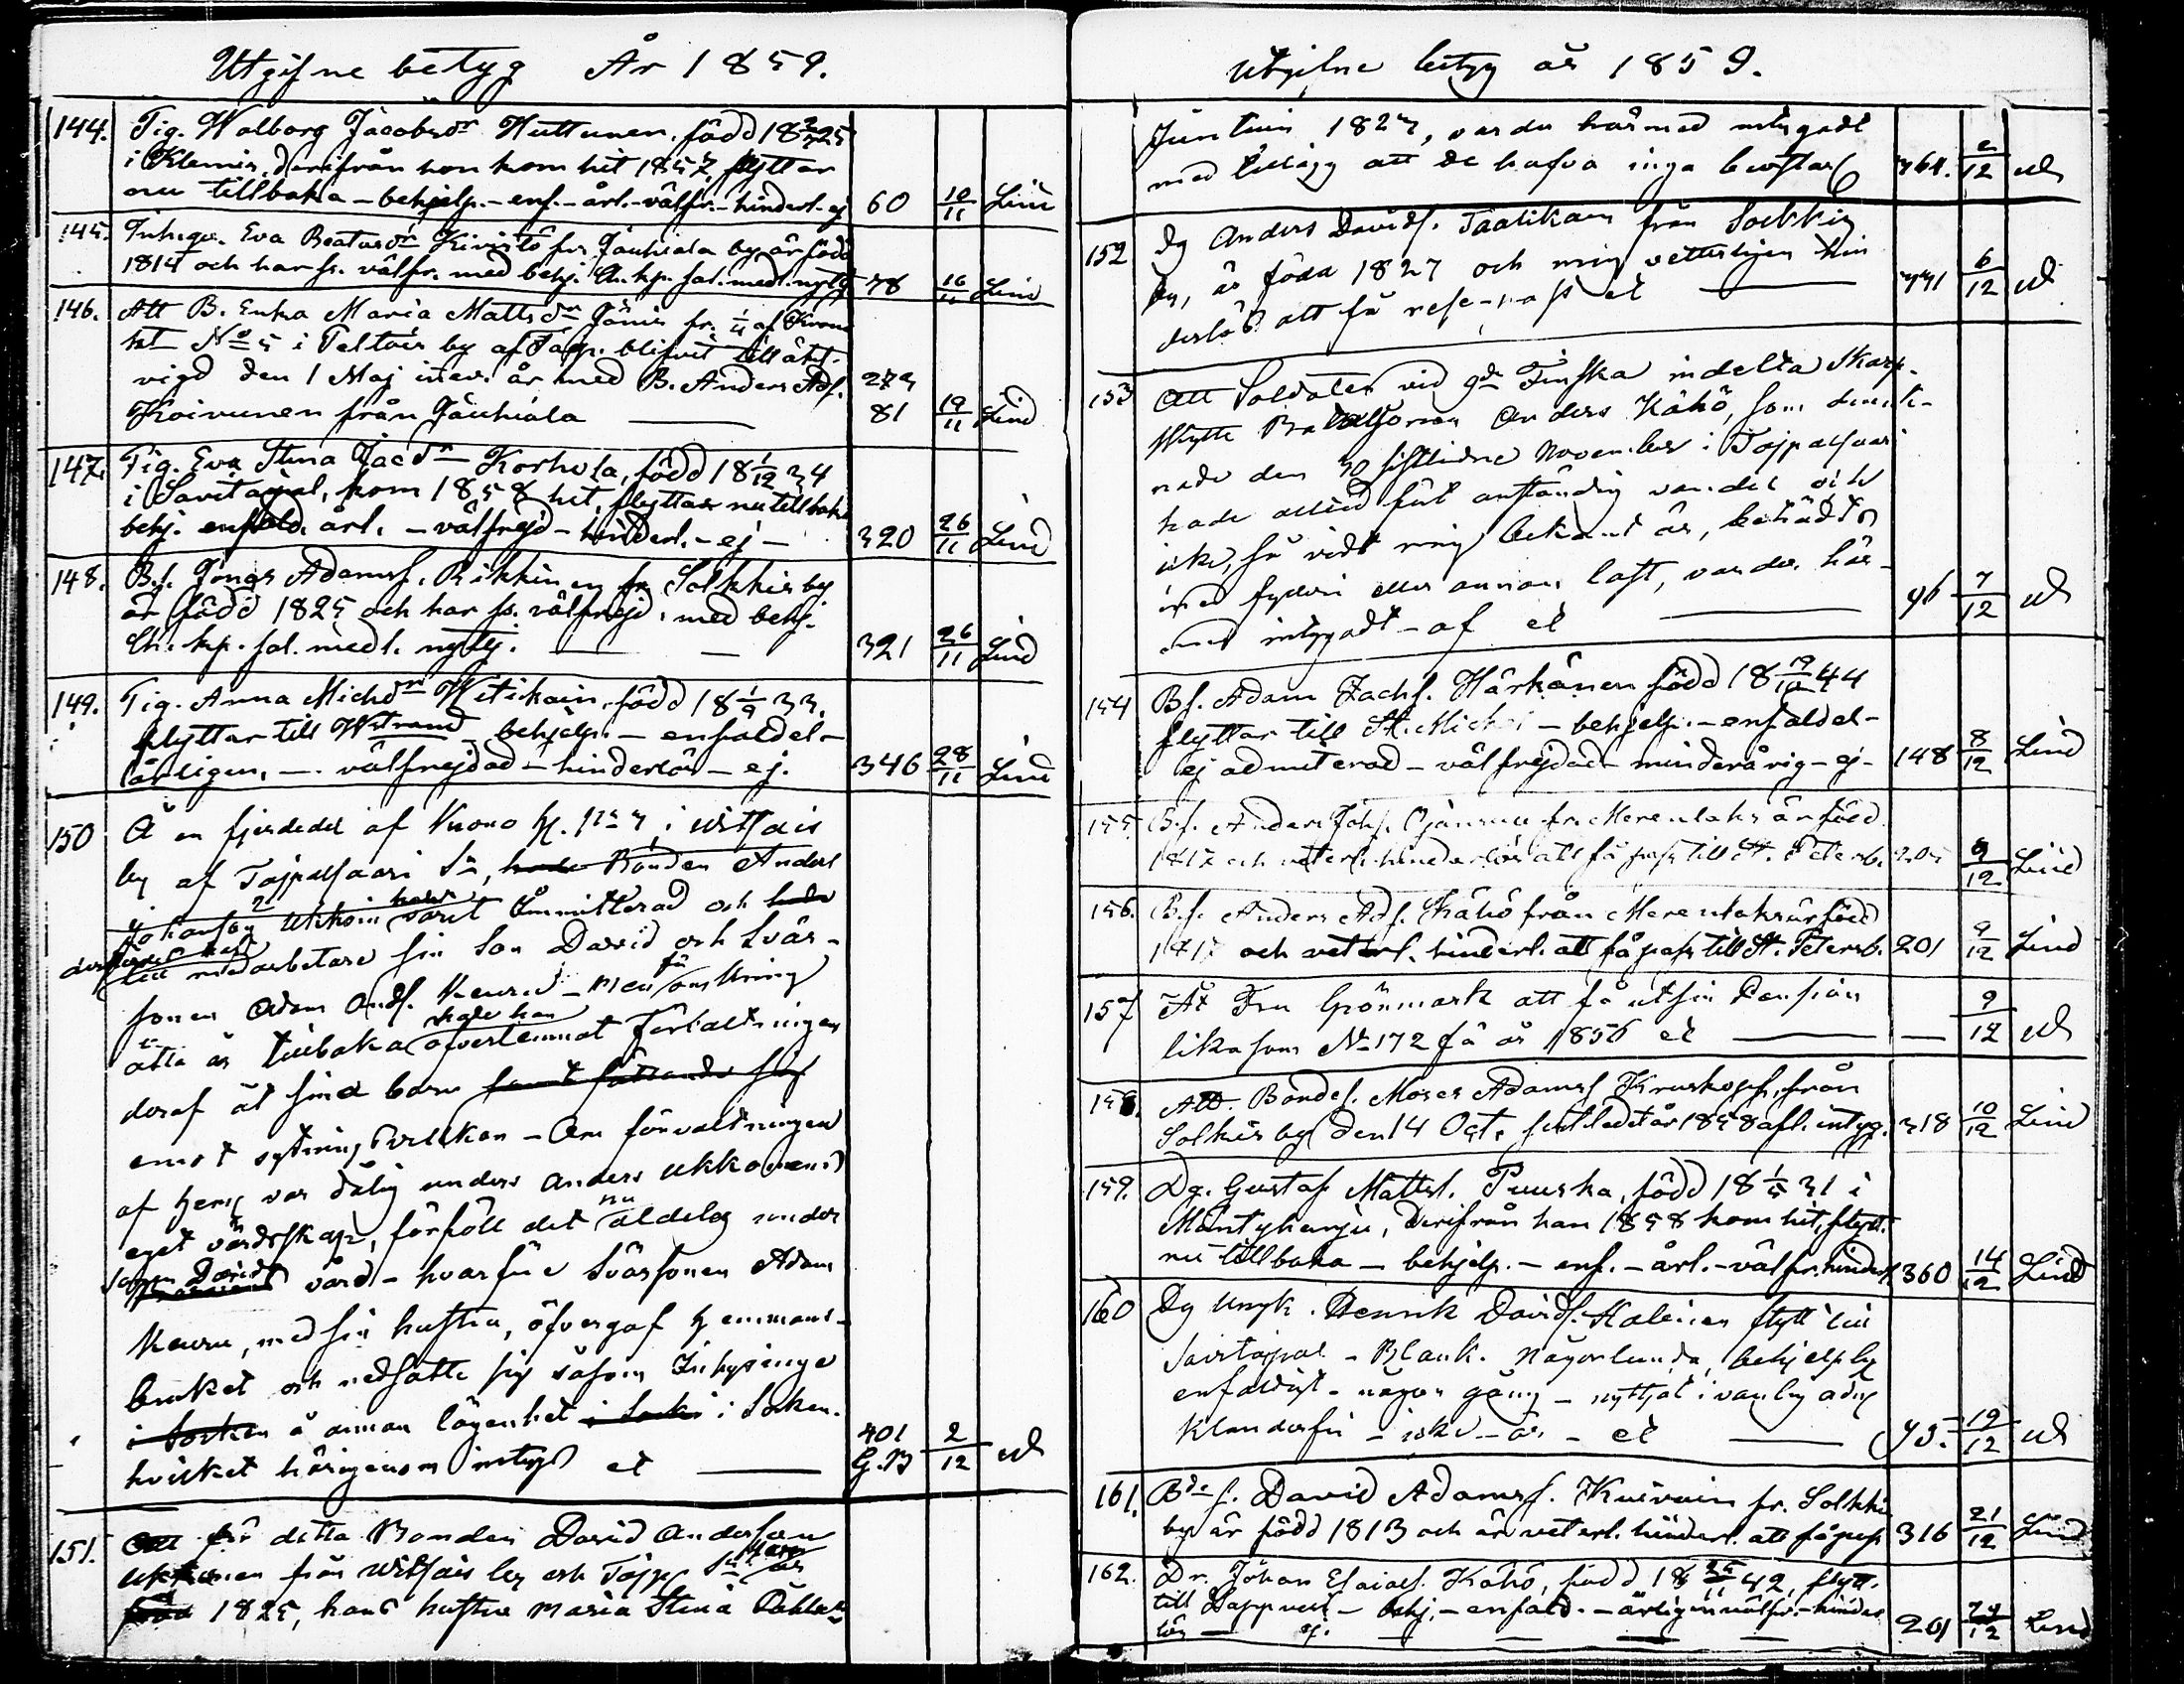 Utgifne betyg År 1859.
144. Pig. Walborg Jacobsdr Huttunen, född 18 2/3 25
i Klemis, derifrån hon kom hit 1857, flyttar
nu tillbaka - behjelp. - enf. - ärl. - välfr. - hinderl. - ej 60 10/11 Lind
145. Inhges. Eva Beatasdr Kiviströ fr. Jauhiala by är född
1814 och har fr. välfr. med behj. Ch. kp. sal. medl. nyttj. 78 16/11 Lind
146. Att B. Enka Maria Mattsdr Jänis fr. 1/4 af Krono
ht No 5 i Peltois by af Taip. blifvit till äkt.
vigd den 1 Maj innev. år med B. Anders Adf. 273
Koivunen från Jauhiala 81 19/11 Lind
147. Pig. Eva Stina Jacdr Korhola, född 18 1/12 34
i Savitaipal, kom 1858 hit, flyttar nu tillbaka
behj. enfald. ärl. - välfrejd - hinderl. - ej - 320 26/11 Lind
148. B.s. Jonas Adamsf. Rikkinen fr. Solkkis by
är född 1825 och har fr. välfrejd, med behj.
Ch. kp. sal. medl. nyttj. 321 26/11 Lind
149. Pig. Anna Michdr Witikain, född 18 1/9 33.
flyttar till Wstrand - behjelp. - enfaldel -
ärligen, - välfrejdad - hinderlös - ej. 346 28/11 Lind
150 Å en fjerdedel af Krono h. No 3 i Witsais
by af Taipalsaari Sn, hade Bonden Anders
Johansson Ukkoin hade varit ommitterad och hade
till medarbetare sin Son David och Svär-
sonen Adam Andf. Keuru - Men för omkring
åtta år tillbaka hade han öfverlemnat förvaltningen
deraf åt sina barn
emot sytning - Om förvaltningen
af hem. var dålig under Anders Ukkonens
eget värdskap, förföll det nu aldeles under
sonen Davids vård - hvarföre Svärsonen Adam
Keuru, med sin hustru, öfvergaf hemmans-
bruket och nedsatte sig såsom Inhysinge
i Socken å annan lägenhet i Socken i Socken. 401 2/12
hvilket härigenom intygas et G.B
151. Att för detta Bonden David Andersson
Ukkonen från Witsais by och Taipp Sn
född 1825, hans hustru Maria Stina
Utgifne betyg år 1859.
1827, varder härmed intygadt
med tillägg att de hafva inga 364. 2/12
152 Dg Anders Davidf. Taalikain från Solkkis
by, är född 1827 och mig vetterligen hin
derlös att få respass et 331 6/12
153 Att Soldaten vid gde Finska indelta Skarp-
skytte Bataljonen Anders Kähö, som
nade den 30 sistlidne November i Taipalsaari
hade alltid fört anständig vandel och
icke, så vidt mig bekant är, beträdts
med fylleri eller annan last, varder här-
med intygadt - af et 96 7/12
154 B.s. Adam Zachf. Härkönen född 18 19/10 44
flyttar till St. Michel - behjelp. - enfaldel -
ej admiterad - välfrejdad - minderårig - ej - 148 8/12 Lind
155. B.s. Anders Johf. Ojansuu fr. Merenlaks är född
1817 och veterl. hinderlös att få pass till St. Petersb. 205 9/12 Lind
156. B.s. Anders Adf. Kähö från Merenlaks är född
1817 och veterl. hinderl. att få pass till St. Petersb. 201 9/12 Lind
157 Åt Fru Grönmark att få ut sin Pension
lika som No 172 få år 1856 et - 9/12
158. Att Bondes. Moses Adamsf Kruskopf, från
Solkis by den 14 Oct. sistledet år 1858 afl. intyg. 318 10/12 Lind
159. Dg. Gustaf Mattsf. Puuska, född 18 1/5 31 i
Mäntyharju, derifrån han 1858 kom hit, flytt.
nu tillbaka - behjelp. - enf. - ärl. - välfr. hinderl. 360 14/12 Lind
160 Dg Ungk. Henrik Davidf. Halinen flytt till
Savitaipal - Blank. Någorlunda, behjelplig
enfaldigt - någon gång - nyttjat i vanlig
Klanderfri - icke - är - et 95. 19/12
161. Bde s. David Adamsf. Kuivain fr. Solkki
by är född 1813 och är veterl. hinderl. att få pass 316 21/12 Lind
162. Dr. Johan Esaiasf. Kähö, född 18 25/11 42, flytt.
till Lappvesi - behj. - enfald. - ärligen välfr. - hinder
lös - ej. 201 24/12 Lind